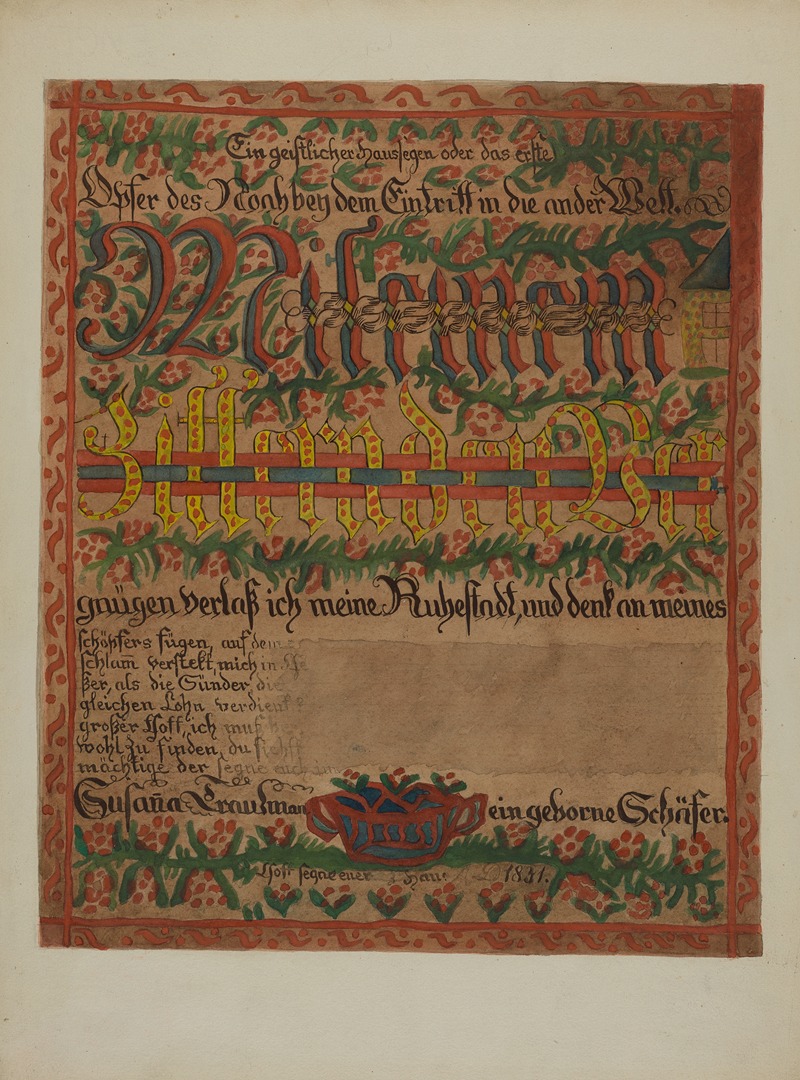 Ein geistlicher Haussegen oder das erste
Opfer des Noah bey dem Eintritt in die ander Welt.
Mit einem
Zitternden Ver
gnügen verlaß ich meine Ruhestadt, und denk an meines
schöpfers fügen, auf dem
schlam̄ verstekt, mich in
ßer, als die Sünder, die
gleichen Lohn verdient
großer Gott, ich muß
wohl zu finden, du siehst
mächtige der segne euch im
Susan̄a Trautman ein geborne Schäfer.
Gott segne euer Haus 1831.